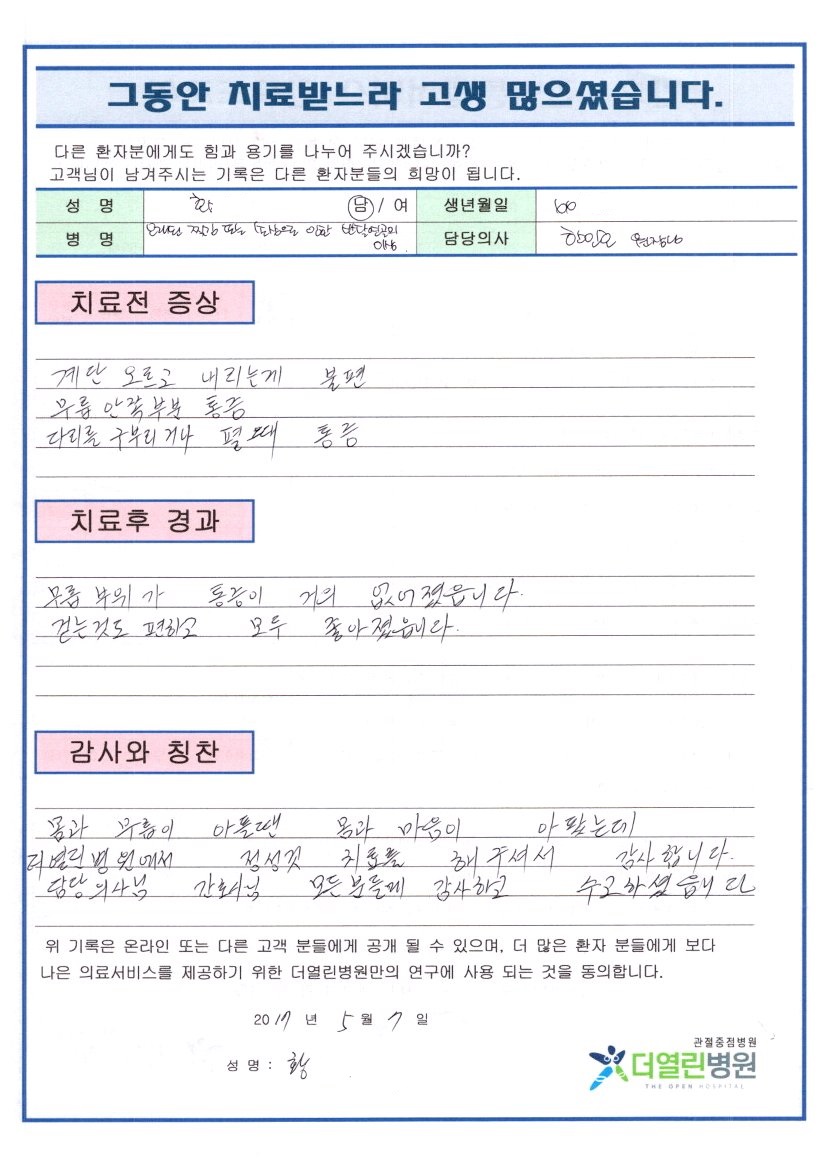 그동안 치료받느라 고생 많으셨습니다.
다른 환자분에게도 힘과 용기를 나누어 주시겠습니까?
고객님이 남겨주시는 기록은 다른 환자분들의 희망이 됩니다.
성 명 황 남 / 여 생년월일 60
병 명 오래된 찢김 또는 손상으로 인한 반달연골의 이상 담당의사 원장님
치료전 증상
계단 오르고 내리는게 불편
무릎 안쪽부분 통증
다리를 구부리거나 펼 때 통증
치료후 경과
무릎 부위가 통증이 거의 없어졌읍니다.
걷는것도 편하고 모두 좋아졌읍니다.
감사와 칭찬
몸과 무릎이 아플땐 몸과 마음이 아팠는데
더열린병원에서 정성껏 치료를 해주셔서 감사합니다.
담당의사님 간호사님 모든분들께 감사하고 수고하셨읍니다
위 기록은 온라인 또는 다른 고객 분들에게 공개 될 수 있으며, 더 많은 환자 분들에게 보다
나은 의료서비스를 제공하기 위한 더열린병원만의 연구에 사용 되는 것을 동의합니다.
2017 년 5 월 7 일
성 명 : 황
관절중점병원
더열린병원
THE OPEN HOSPITAL